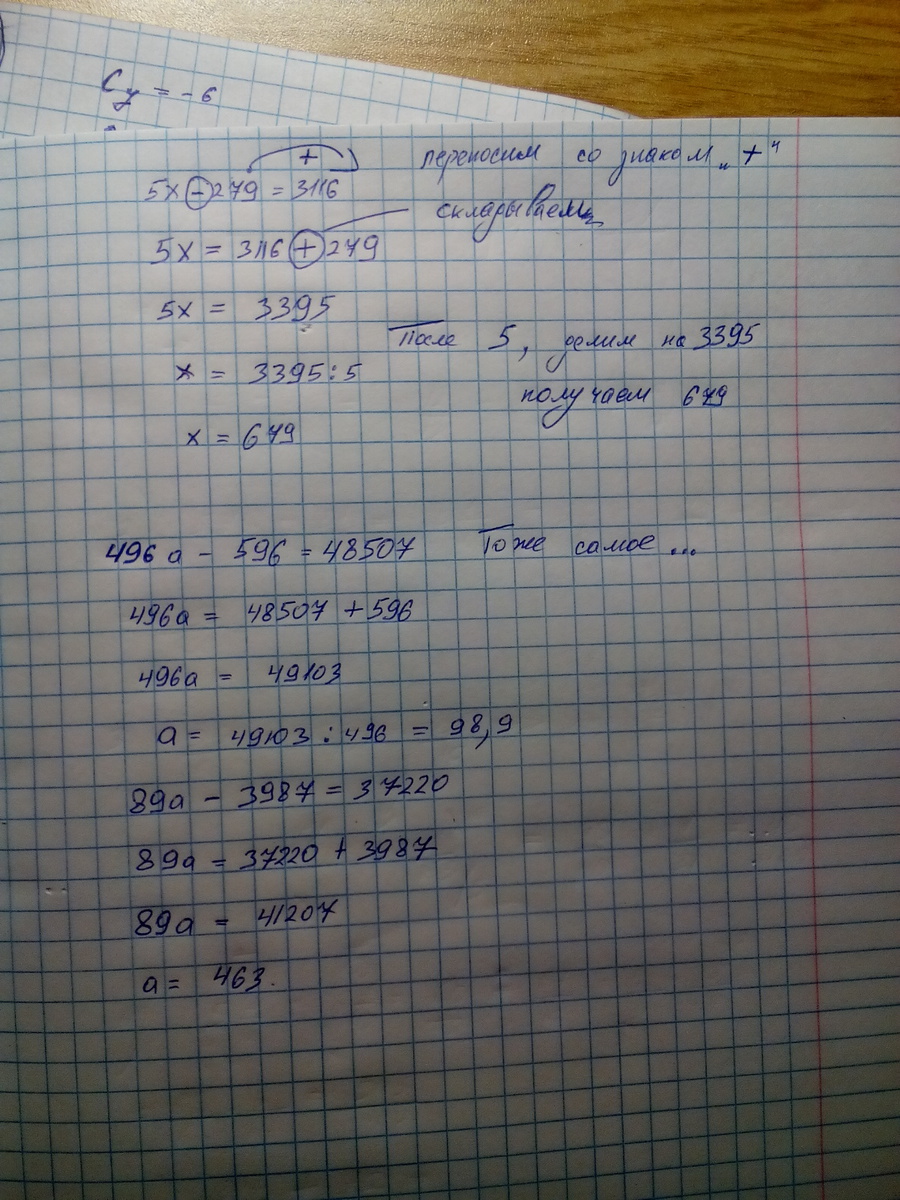 Cy = -6
+
переносим со знаком „+"
5x - 279 = 3116
складываем
5x = 3116 + 279
5x = 3395
После 5, делим на 3395
x = 3395 : 5
получаем 679
x = 679
496a - 596 = 48507
Тоже самое...
496a = 48507 + 596
496a = 49103
a = 49103 : 496 = 98,9
89a - 3987 = 37220
89a = 37220 + 3987
89a = 41207
a = 463.